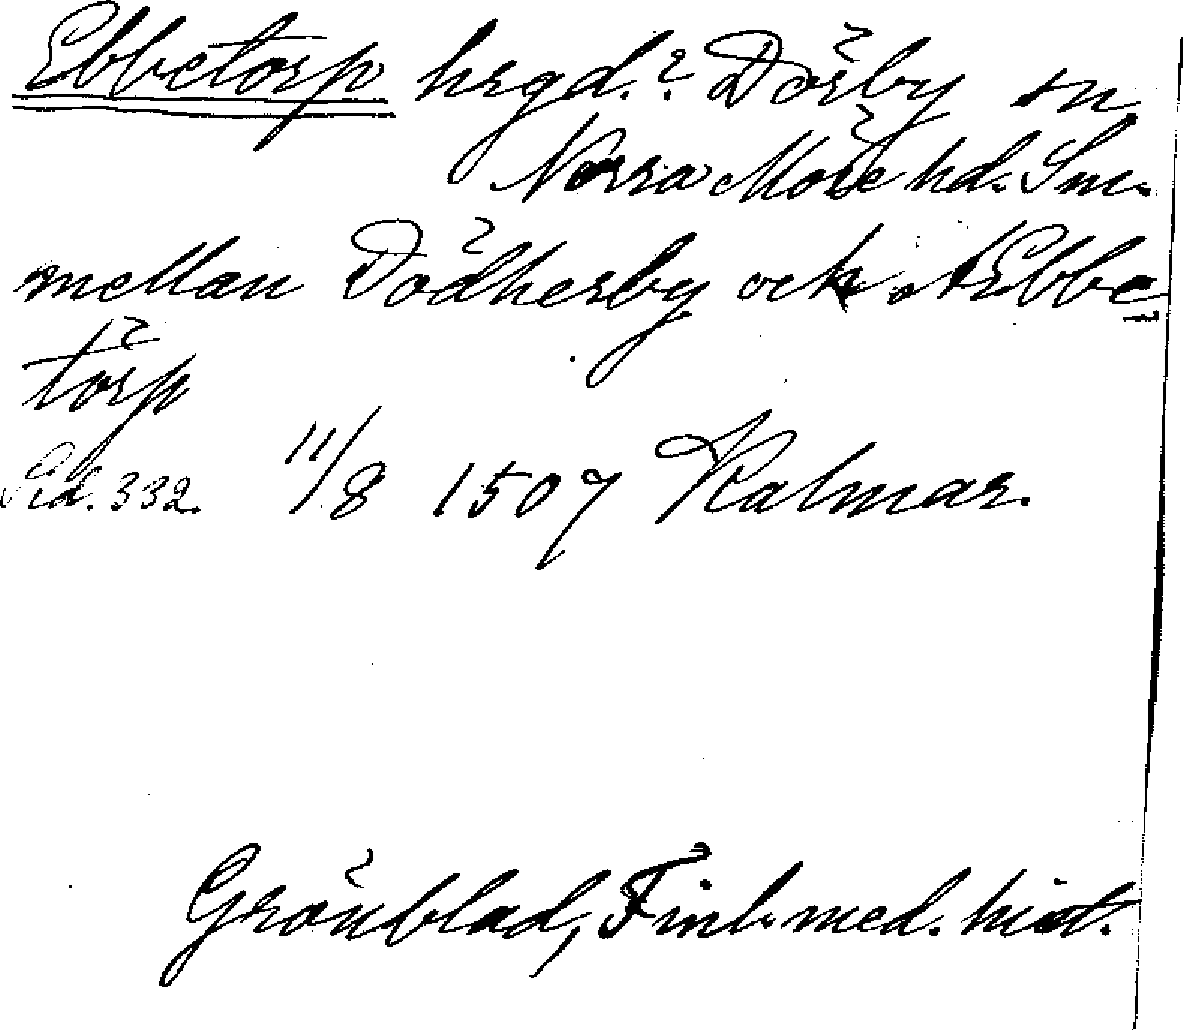 Ebbetorp hrgd.? Dörby sn
Norra Möre hd. Sm.
mellan Dödherby och Ebbe
törp
Sid. 332. 11/8 1507 Kalmar.
Grönblad, Finl. med. hist.